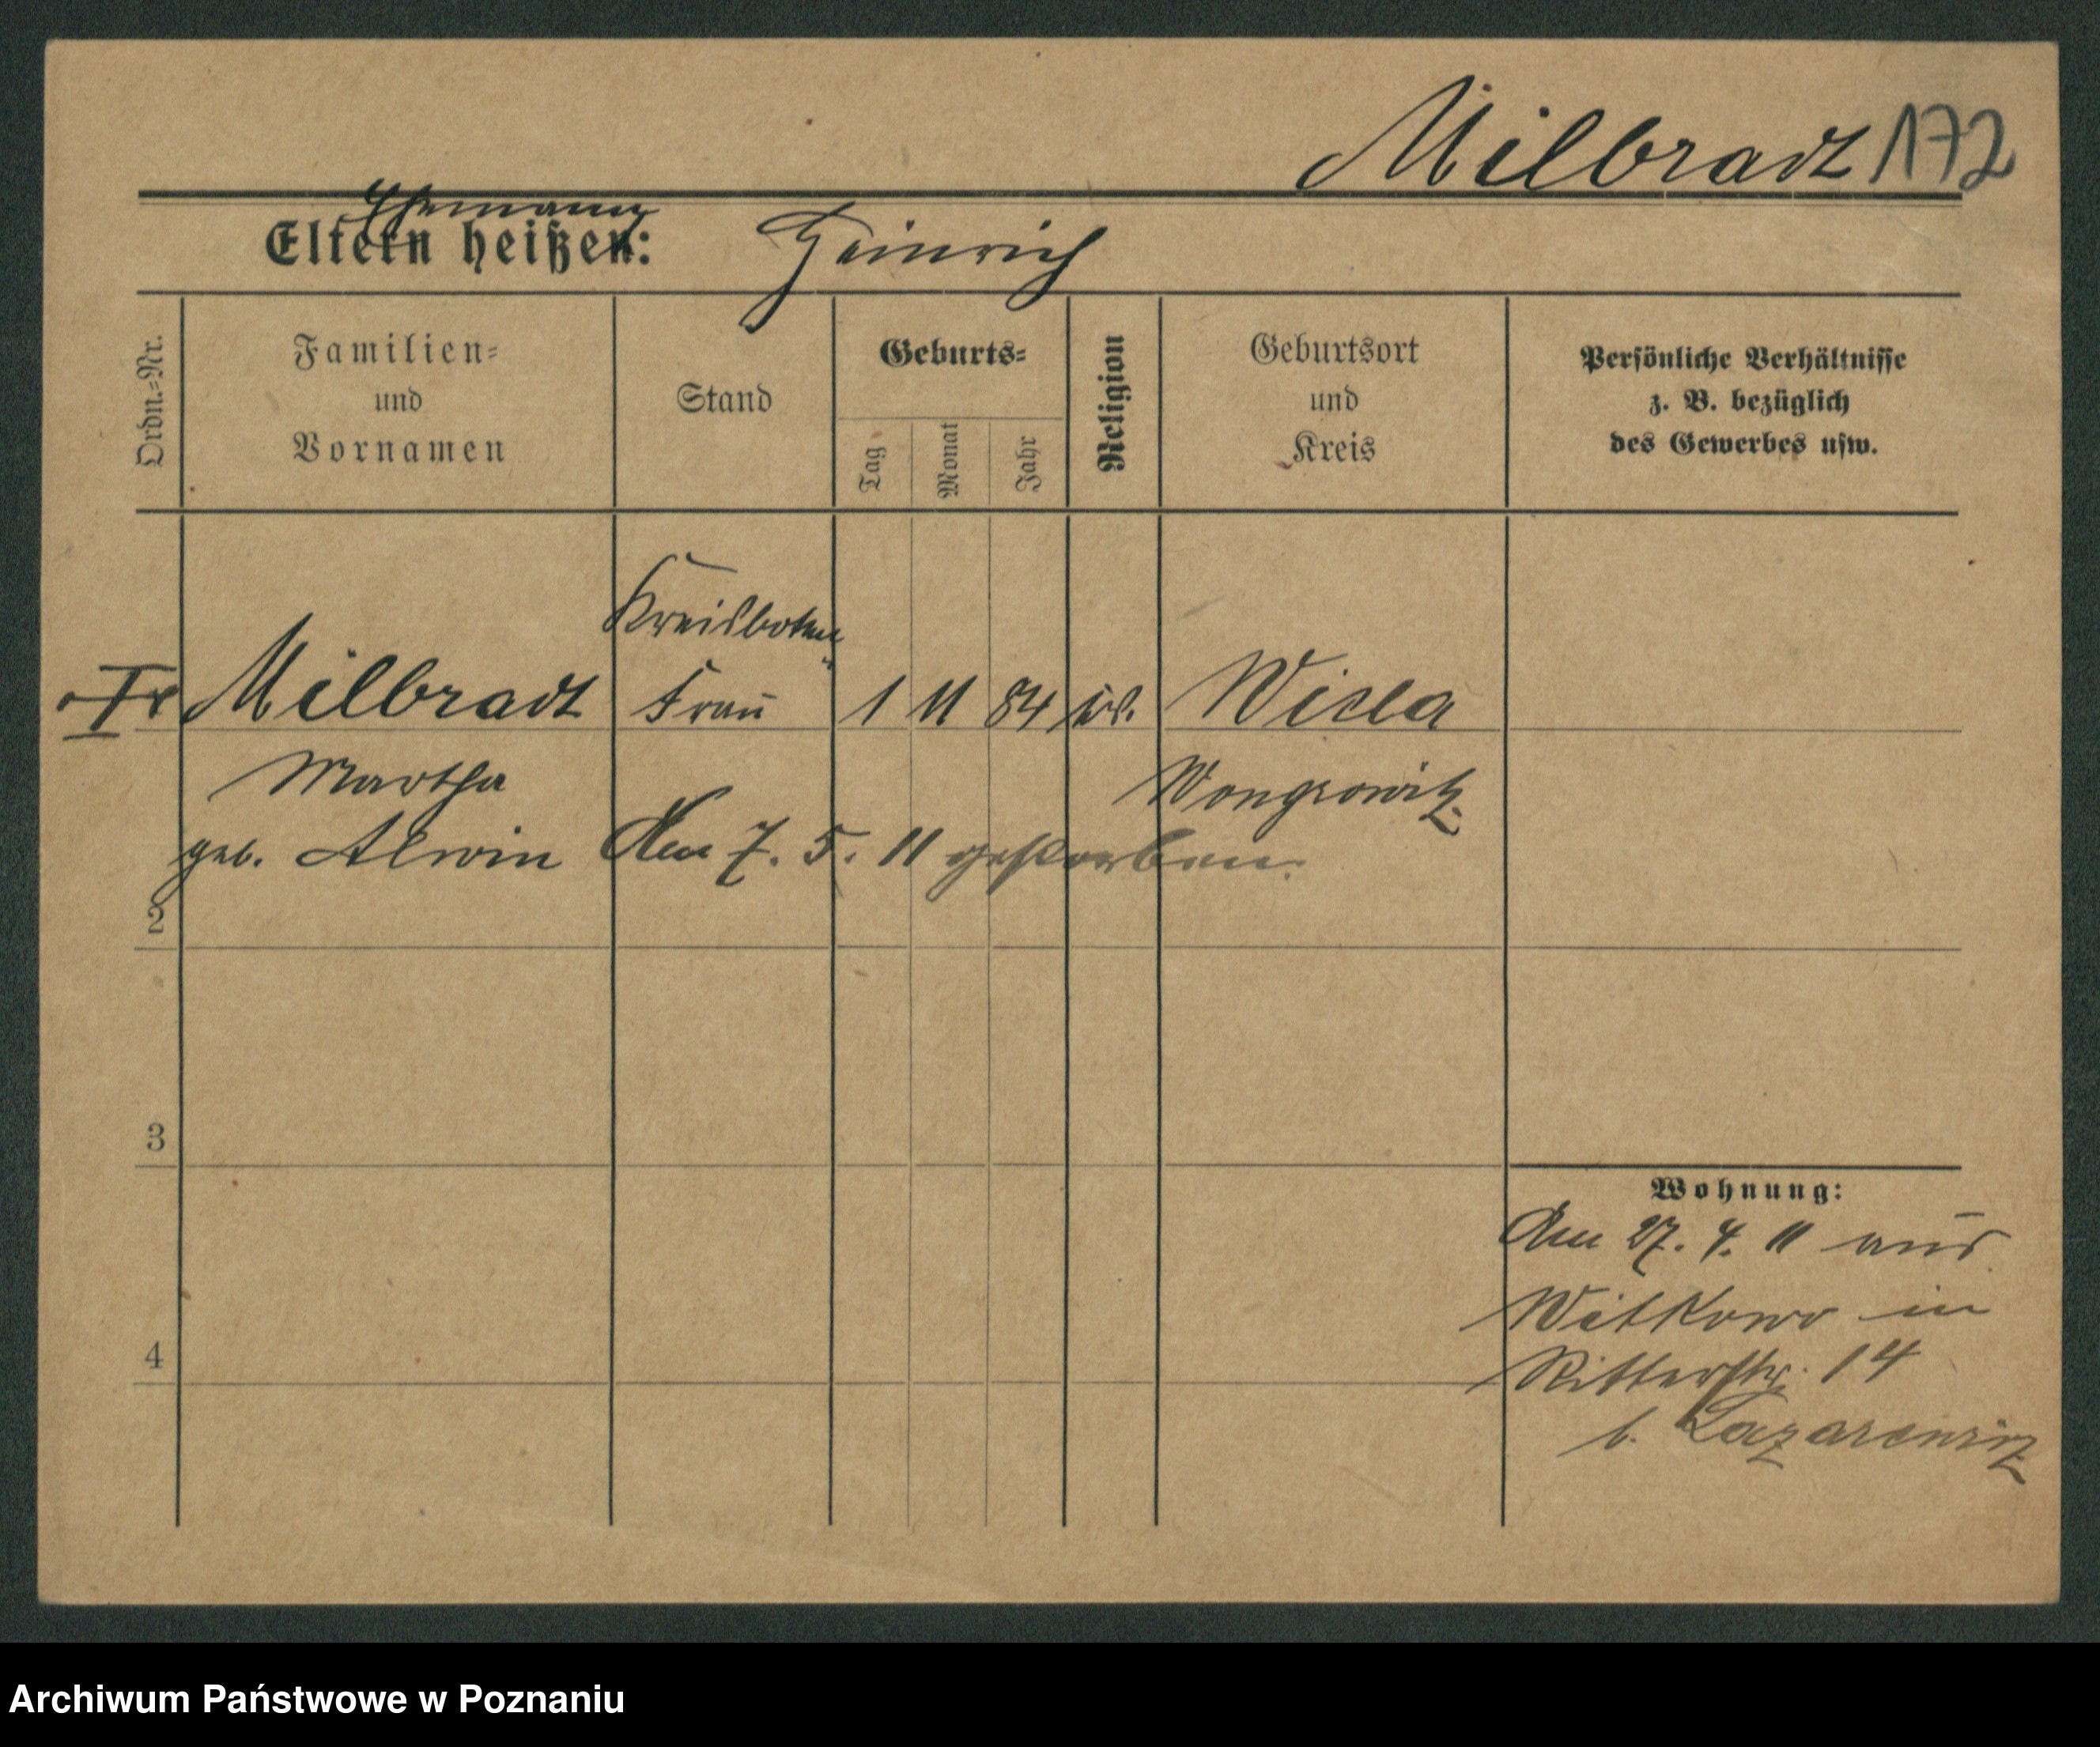 Milbradt 172
Ehemann
Eltern heißen: Heinrich
Ordn.-Nr.
Familien-
und
Vornamen
Stand
Geburts-
Tag
Monat
Jahr
Religion
Geburtsort
und
Kreis
Persönliche Verhältnisse
z. B. bezüglich
des Gewerbes usw.
Kreisboten-
Milbradt Frau 1 11 84 Wiela
Martha Wongrowitz
geb. Alwin Am 7. 5. 11 gestorben.
2
3
4
Wohnung:
Am 27. 4. 11 aus
Witkowo in
Ritterstr. 14
b. Lazarewicz
Archiwum Państwowe w Poznaniu